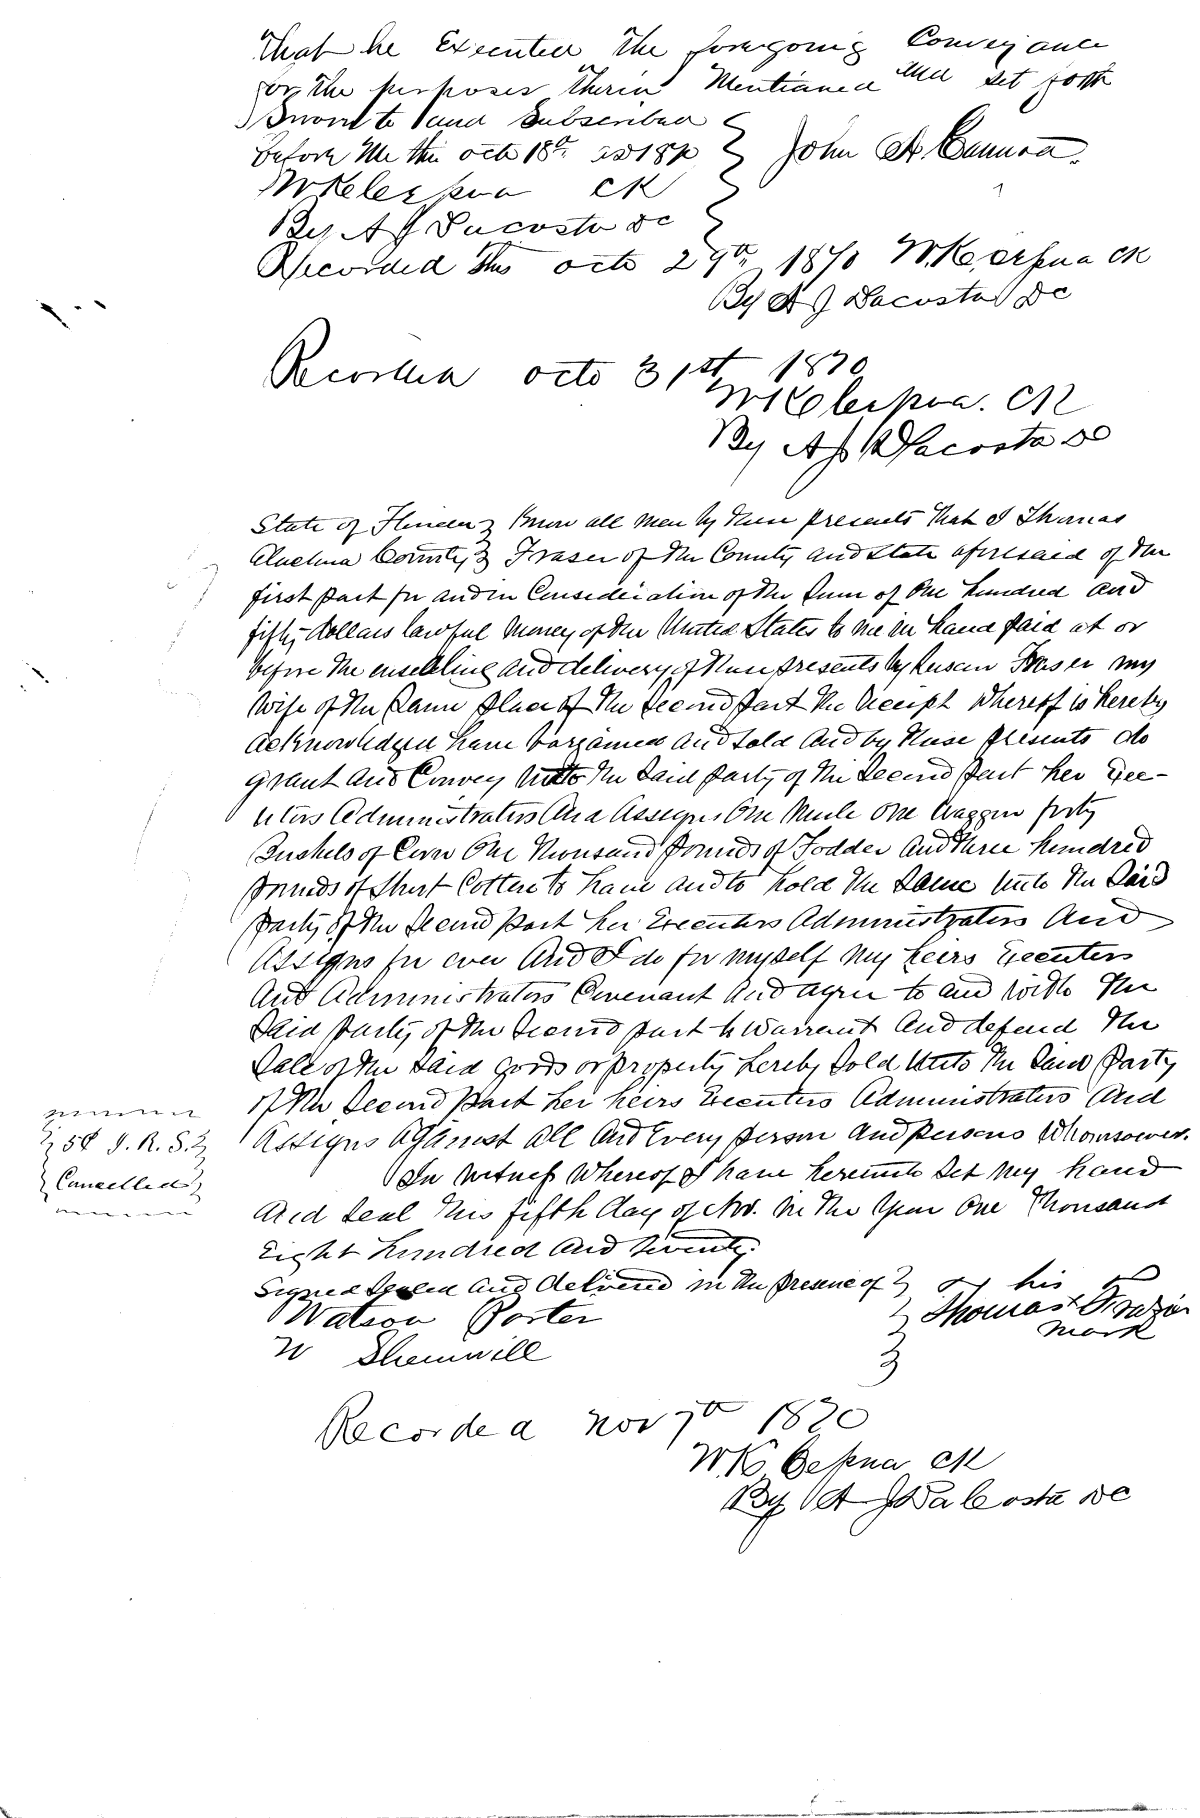 that he Executed the foregoing Conveyance
for the purposes therin Mentioned and set forth
Sworn to and Subscribed
before Me this octo 18th AD 1870 } John A
W K Cessna CK
By A J Dacosta DC
Recorded this octo 29th 1870 W. K. Cessna CK
By A J Dacosta DC
Recorded octo 31st 1870
W K Cessna. CK
By A J Dacosta DC
State of Florida } Know all men by these presents that I Thomas
Alachua County } Fraser of the County and State aforesaid of the
first part for and in Consideration of the Sum of One hundred and
fifty dollars lawful Money of the United States to me in hand paid at or
before the ensealing and delivery of these presents by Susan Fraser my
Wife of the Same place of the Second part the receipt whereof is hereby
acknowledged have bargained and Sold and by these presents do
grant and Convey Unto the Said party of the Second part her Exec-
utors Administrators And Assigns One Mule One Waggon forty
Bushels of Corn One thousand pounds of Fodder and three hundred
pounds of Short Cotton to have and to hold the Same Unto the Said
party of the Second part her Executors Administrators And
Assigns for ever And I do for myself My heirs Executors
And Administrators Covenant And agree to and with the
Said party of the Second part to Warrant And defend the
Sale of the Said goods or property hereby Sold Unto the Said Party
of the Second part her heirs Executors Administrators And
Assigns Against All And Every person and persons Whomsoever.
5¢ I. R. S.
Cancelled
In Witness Whereof I have hereunto Set My hand
And Seal this fifth day of Nov. in the Year One Thousand
Eight hundred and Seventy.
Signed Sealed and delivered in the presence of } his
Watson Porter } Thomas x Frazier
W Shemwill } mark
Recorded Nov 7th 1870
W K Cessna CK
By A J DaCosta DC